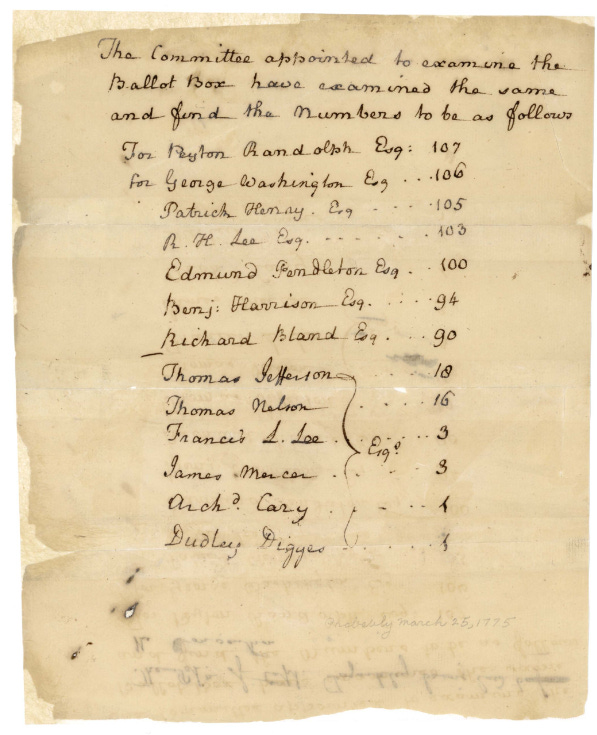 The Committee appointed to examine the
Ballot Box have examined the same
and find the Numbers to be as follows
For Peyton Randolph Esq: 107
for George Washington Esq ... 106
Patrick Henry. Esq - - - - 105
R. H. Lee Esq. - - - - - - 103
Edmund Pendleton Esq. .. 100
Benj: Harrison Esq. .... 94
Richard Bland Esq. ... 90
Thomas Jefferson ..... 18
Thomas Nelson ..... 16
Francis L. Lee ..... 3
Esqs
James Mercer ..... 3
Archd. Cary . . - .. 1
Dudley Digges - . .... 1
Probably March 25, 1775